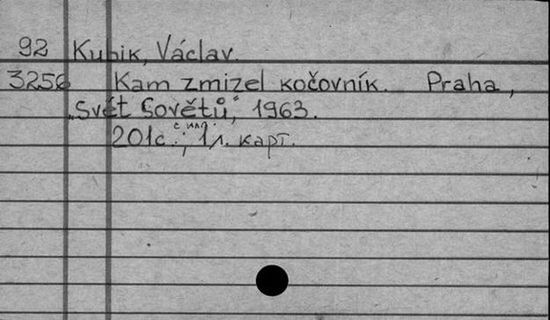 92 Kubik, Václav.
3256 Kam zmizel kočovník. Praha,
„Svět Sovětů,“ 1963.
с илл.
201с.; 1л. карт.